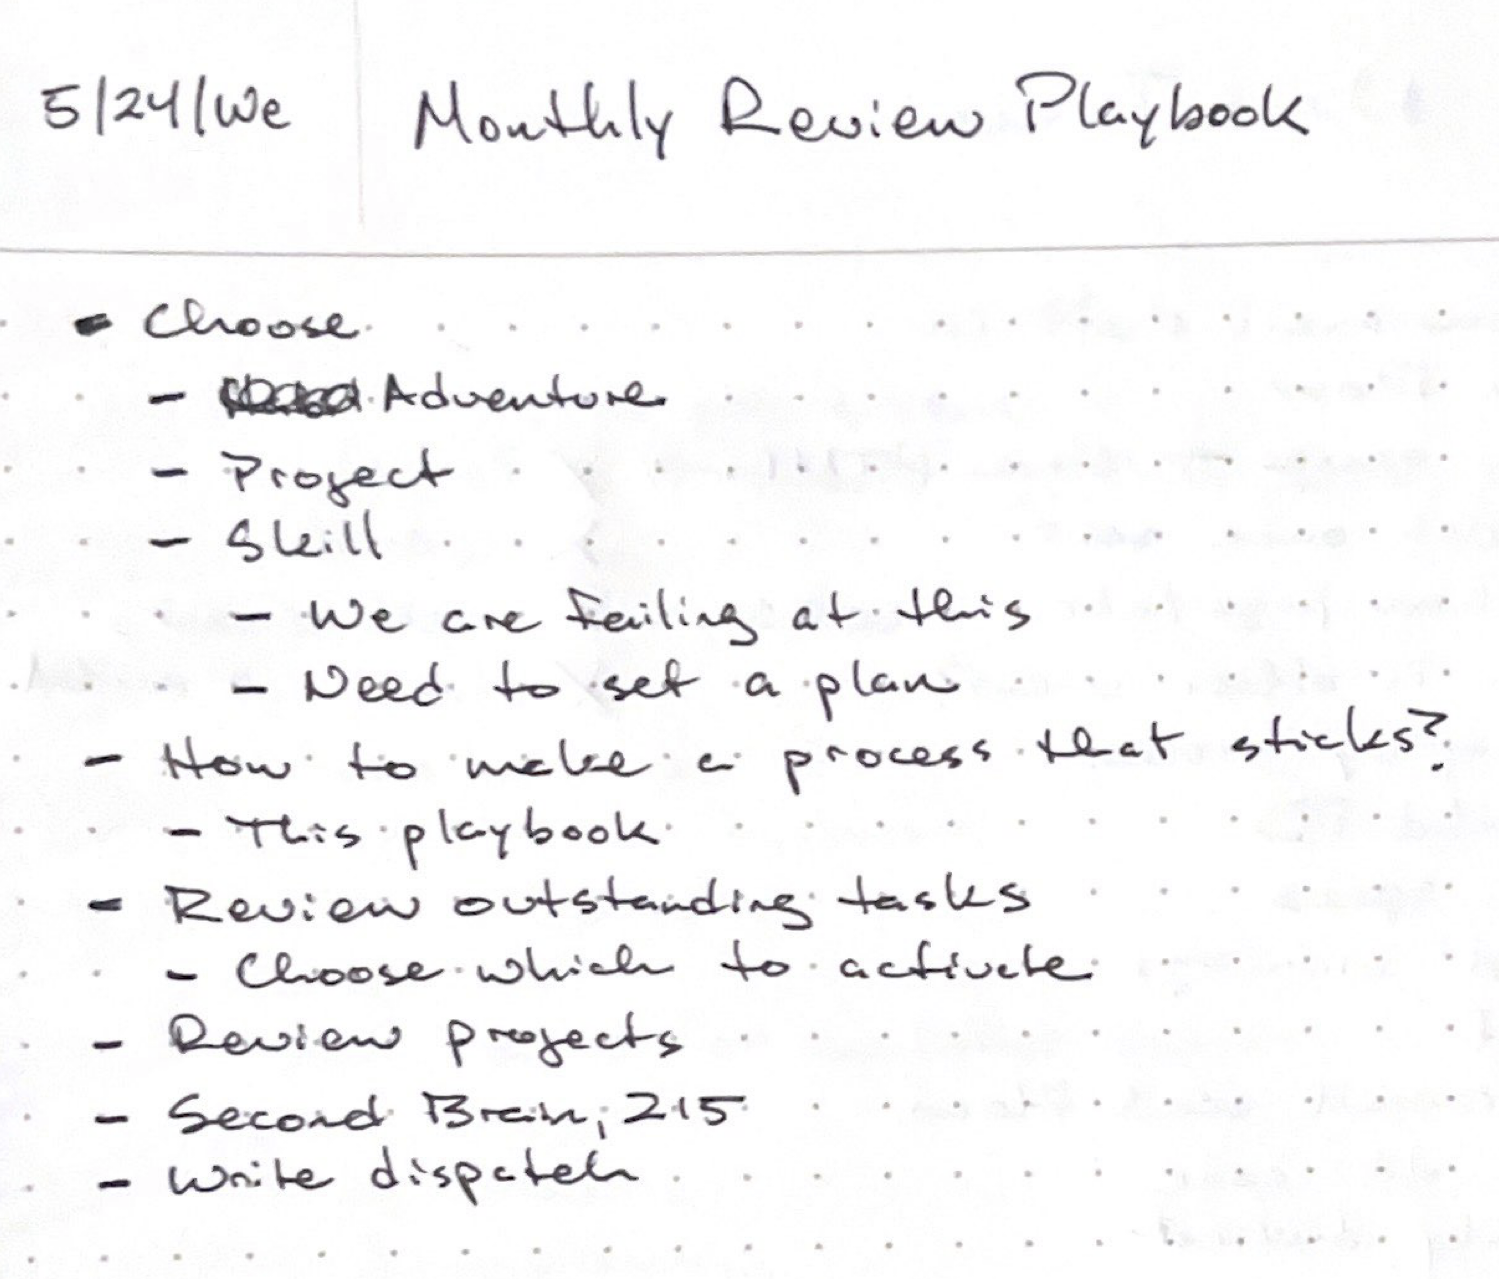 5/24/We Monthly Review Playbook
- Choose
- Adventure
- Project
- Skill
- We are failing at this
- Need to set a plan
- How to make a process that sticks?
- This playbook
- Review outstanding tasks
- Choose which to activate
- Review projects
- Second Brain, 215
- Write dispatch